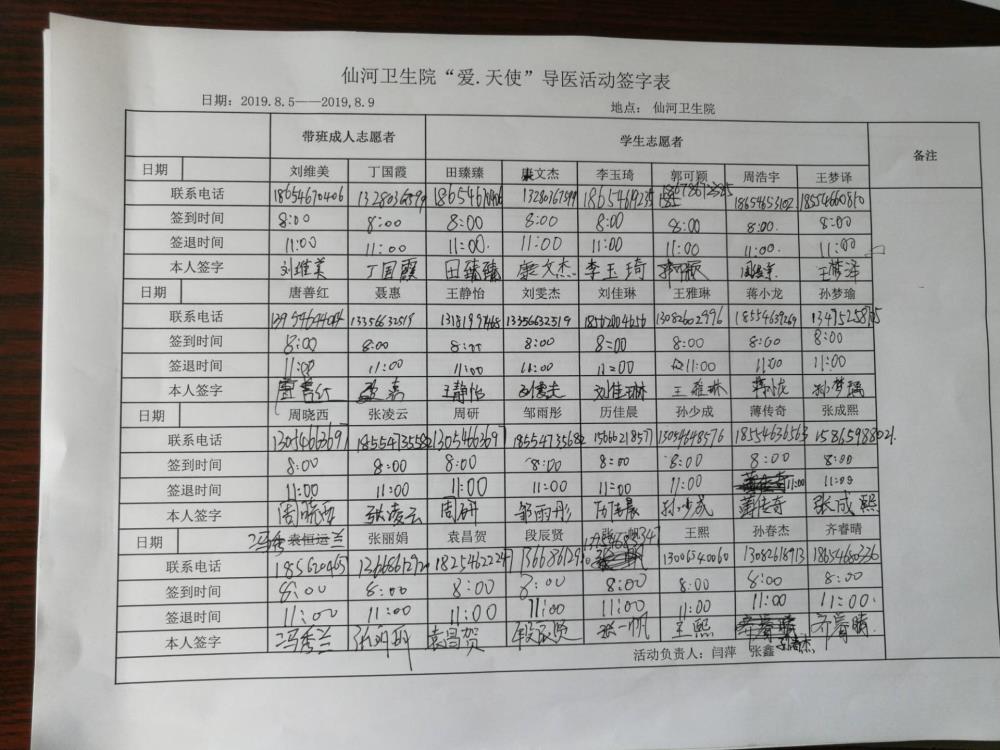 仙河卫生院“爱.天使”导医活动签字表
日期：2019.8.5——2019,8.9 地点： 仙河卫生院
带班成人志愿者 学生志愿者 备注
日期 刘维美 丁国霞 田臻臻 康文杰 李玉琦 郭可颖 周浩宇 王梦译
联系电话 18654670406 18654653102
签到时间 8:00 8:00 8:00 8:00 8:00 8:00 8:00. 8:00
签退时间 11:00 11:00 11:00. 11:00 11:00 11:00 11:00. 11:00
本人签字 刘维美 丁国霞 田臻臻 康文杰 李玉琦 王梦译
日期 唐善红 聂惠 王静怡 刘雯杰 刘佳琳 王雅琳 蒋小龙 孙梦瑜
联系电话 13356632519 13356632519 13082602996 18554639269
签到时间 8:00 8:00 8:00 8:00 8=00 8:00 8:00 8:00
签退时间 11:00 11:00 11:00 11:00 11=00 11:00 11:00 11:00
本人签字 唐善红 王静怡 刘雯杰 刘佳琳 王雅琳 蒋小龙 孙梦瑀
日期 周晓西 张凌云 周研 邹雨彤 历佳晨 孙少成 薄传奇 张成熙
联系电话 13054663697 18554735582 13054663697 15666218577 13054648576 18554636563 15865988021.
签到时间 8:00 8:00 8:00 8:00 8=00 8:00 8:00 8:00
签退时间 11:00 11:00 11:00 11:00 11=00 11:00 11:00 11:00
本人签字 周晓西 张凌云 周研 邹雨彤 历佳晨 孙少成 薄传奇 张成熙
日期 冯秀兰 袁恒运 张丽娟 袁昌贺 段辰贤 王熙 孙春杰 齐睿晴
联系电话 13065240060 13082618913 18654660336
签到时间 8:00 8:00 8:00 8:00 8:00 8:00 8:00 8:00
签退时间 11:00 11:00 11:00 11:00 11:00 11:00 11:00 11:00.
本人签字 冯秀兰 袁昌贺 段辰贤 张一帆 王熙 齐睿晴
活动负责人：闫萍 张鑫